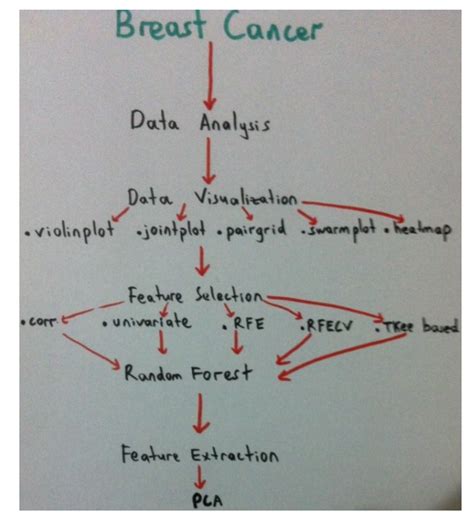 Breast Cancer
Data Analysis
Data Visualization
.violinplot .jointplot .pairgrid .swarmplot .heatmap
Feature Selection
.corr. .univariate .RFE .RFECV .Tree based
Random Forest
Feature Extraction
PCA